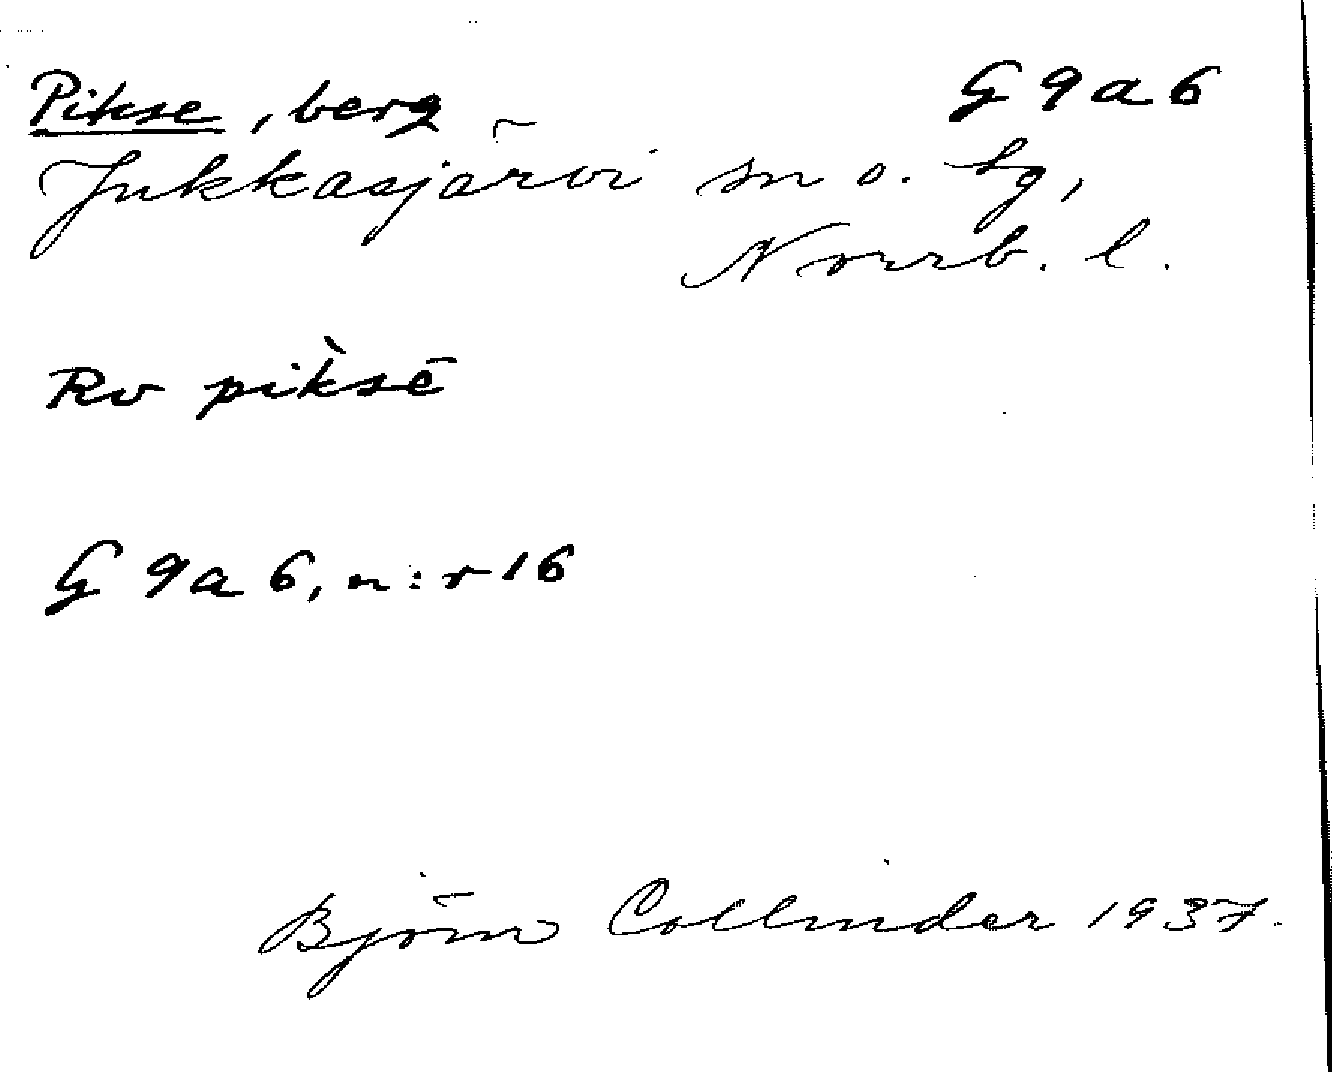 Pikse, berg G 9 a 6
Jukkasjärvi sn o. tg,
Norrb. l.
Rv pik̀sē
G 9 a 6, n:r 16
Björn Collinder 1937.